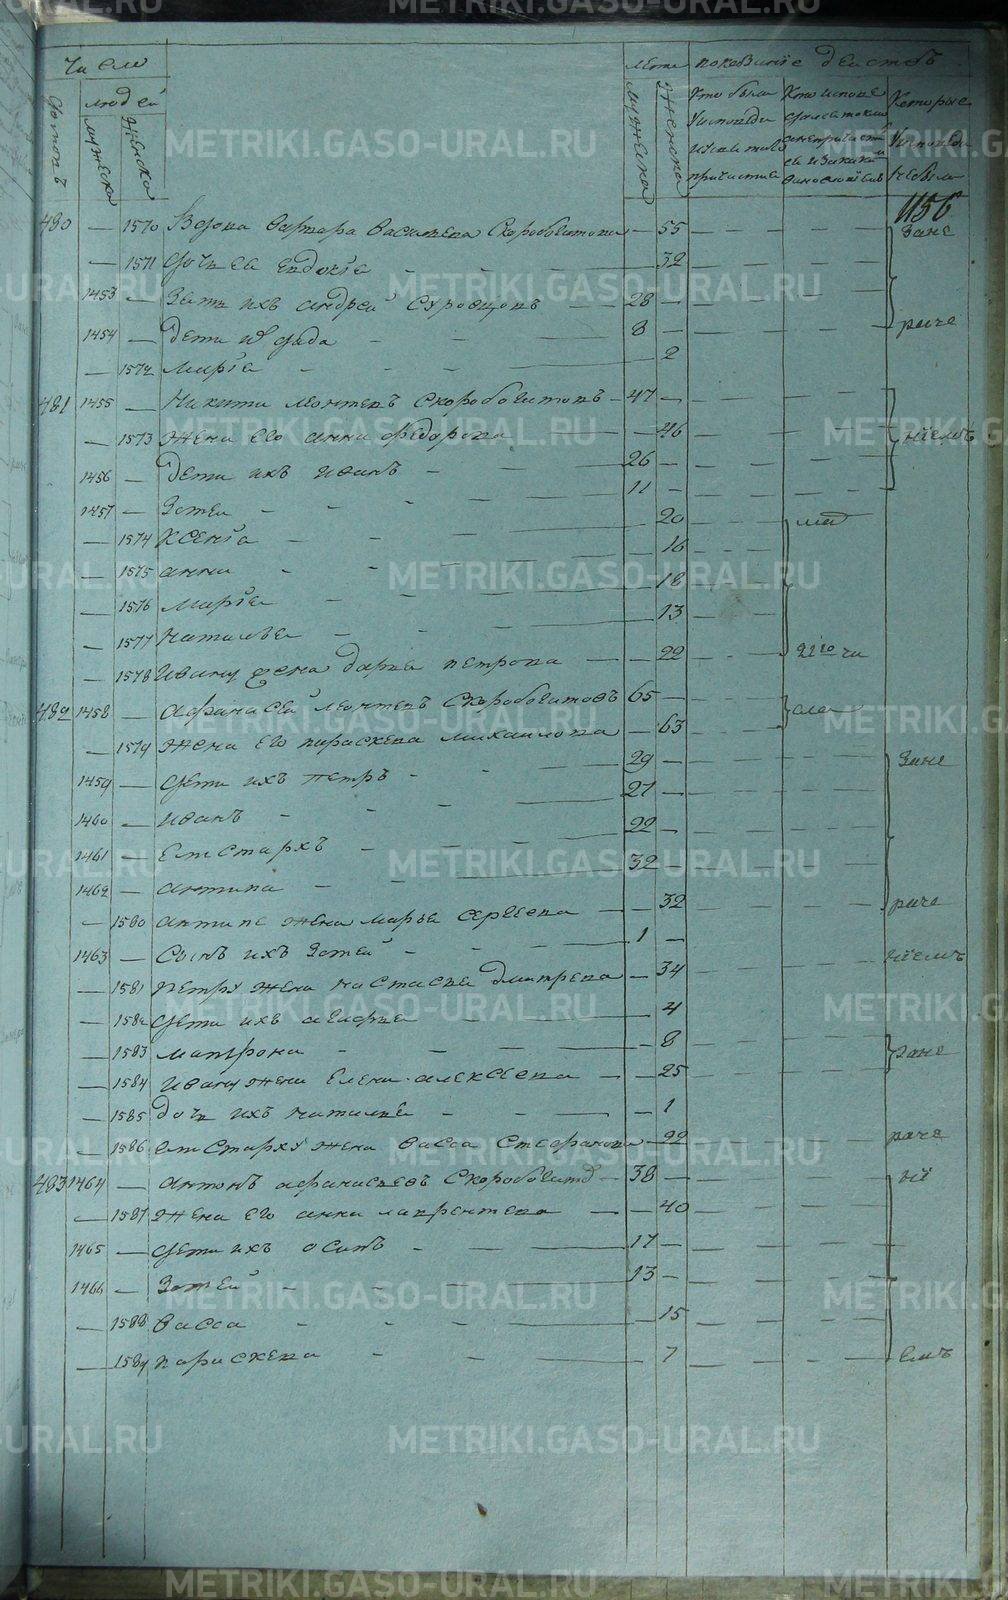 Число
Лета
показанїе действъ
домовъ
людей
мужеска
женска
мужеска
женска
Кто были
У исповеди
и с. причастїя
Которые
У исповеди
не были
1156
480 — 1570 Вдова Варвара Васильева Скоробогатова — 55 — — — Зане
— 1571 дочь ея Евдокїя — 32
1453 — Зять ихъ Андрей Суровцовъ — 28 —
1454 — Дети 8 — раче
— 1572 Марїя — 2
481 1455 — Никита Леонтьевъ Скоробогатовъ — 47 —
— 1573 жена его Анна Федорова — 46 — нїемъ
1456 — Дети ихъ Иванъ — 26 —
1457 — Зотей — 11 —
— 1574 Ксенїя — 20
— 1575 Анна — 16
— 1576 Марїя — 18
— 1577 Наталья — 13
— 1578 Ивану жена Дарья Петрова — — 22
482 1458 — Афанасей Леонтьевъ Скоробогатовъ 65 —
— 1579 жена его Параскева Михаилова — 63
1459 — дети ихъ Петръ — 29 — Зане
1460 — Иванъ — 27 —
1461 — Елистархъ — 22 —
1462 — Антипа — 32
— 1580 Антипе жена Марья Сергеева — — 32 раче
1463 — Сынъ ихъ Зотей — 1 — нїемъ
— 1581 Петру жена Настасья Дмитрева — 34
— 1582 дети ихъ — 4
— 1583 Матрона — 8 Зане
— 1584 Ивану жена Елена Алексеева — — 25
— 1585 дочь ихъ Наталья — 1
— 1586 Елистарху жена Васса Стефанова — 22 раче
483 1464 — Антонъ Афанасьевъ Скоробогатов — 38 — нї
— 1587 жена его Анна Лаврентева — — 40
1465 — дети ихъ Осипъ — 17 —
1466 — Зотей — 13 —
— 1588 Васса — 15
— 1589 Параскева — 7 емъ
METRIKI.GASO-URAL.RU